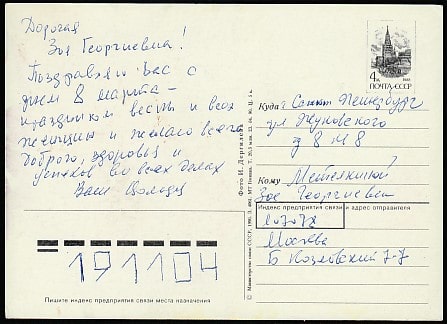 Дорогая
Зоя Георгиевна!
Поздравляю Вас с
днем 8 марта –
праздником весны и всех
женщин и желаю всего
доброго, здоровья и
успехов во всех делах
Ваш
4к
ПОЧТА СССР
Куда г. Санкт Петербург
ул Жуковского
д 8 
Кому
Зое Георгиевне
Индекс предприятия связи и адрес отправителя
107078
Москва
Б Козловский 7-7
191104
Пишите индекс предприятия связи места назначения
Фото И. Дергилева
© Министерство связи СССР,